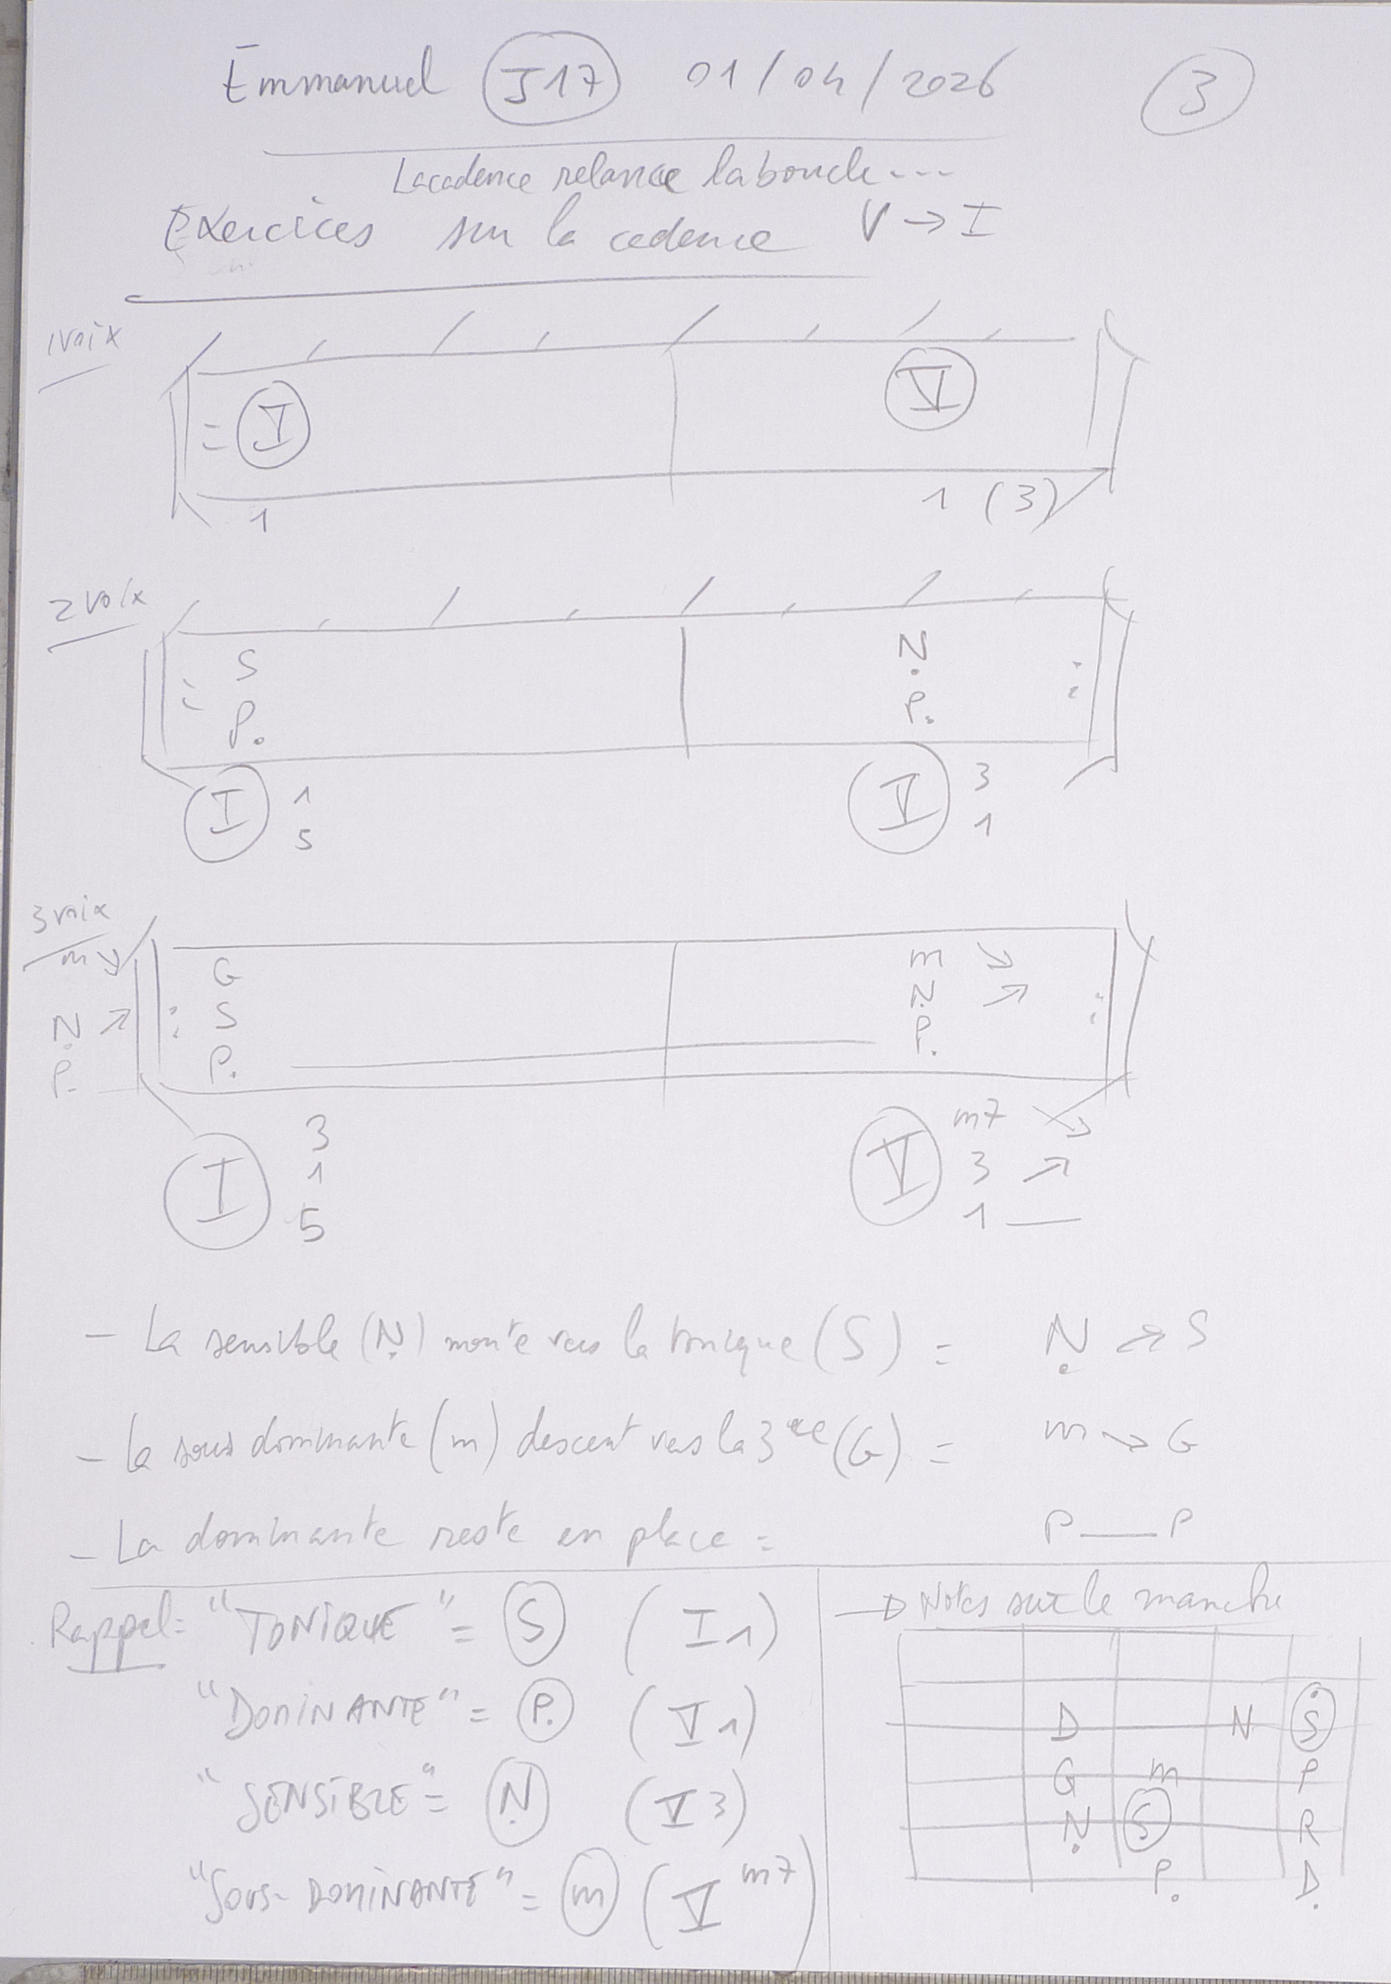 Emmanuel J17 01/04/2026 3
La cadence relance la boucle...
Exercices sur la cadence V → I
1 voix
I V
1 1 (3)
2 voix
S N
P. P.
I 1 V 3
5 1
3 voix
m ↘ G m ↘
N ↗ S N ↗
P. P. P.
m7 ↘
I 3 V 3 ↗
1 1
5
- La sensible (Ṇ) monte vers la tonique (S) = Ṇ ↗ S
- La sous dominante (m) descent vers la 3ce (G) = m ↘ G
- La dominante reste en place = P — P
Rappel = "TONIQUE" = S (I 1)
"DOMINANTE" = P. (V 1)
"SENSIBLE" = Ṇ (V 3)
"SOUS-DOMINANTE" = m (V m7)
→ Notes sur le manche
D N Ṡ
G m P
Ṇ S R
P. D.